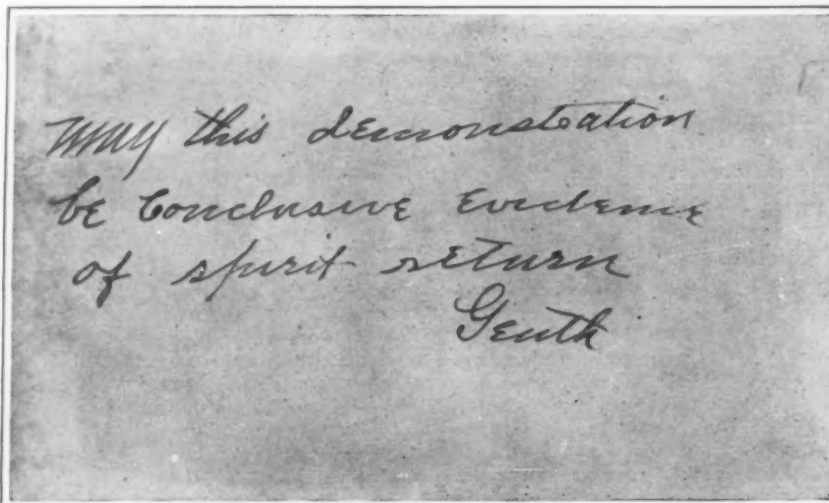 may this demonstration
be conclusive evidence
of spirit return
Genth